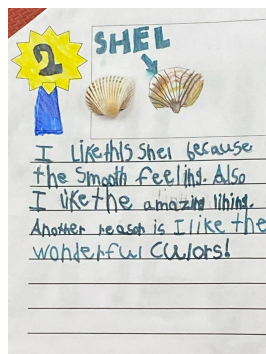 2
SHEL
I like this shel because
the smooth feeling. Also
I like the amazing lining.
Another reason is I like the
wonderful culors!